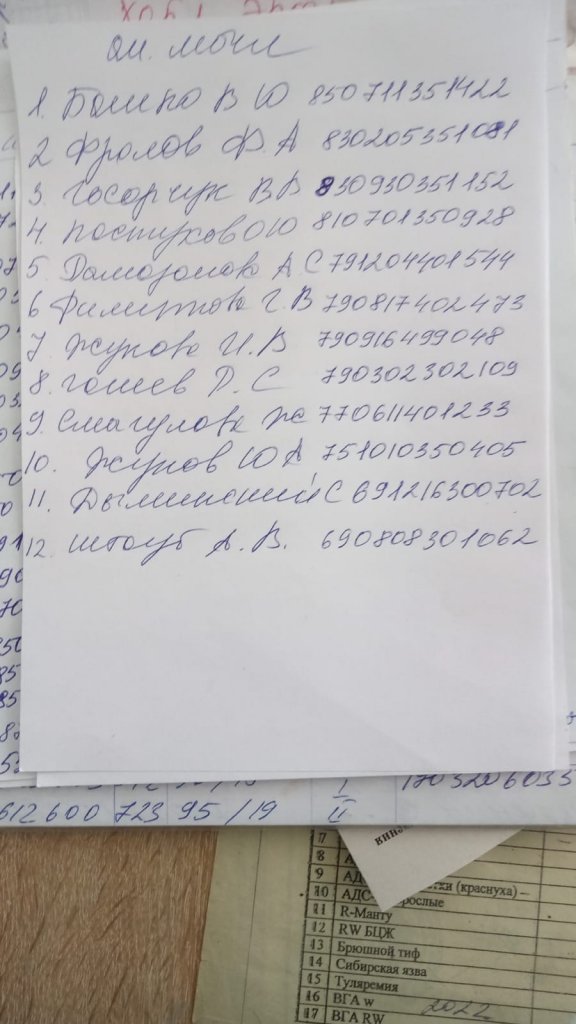 ан. мочи
1. Бошко В Ю 850711351422
2 Фролов Ф. А 830205351081
3. Госорчук В В 830930351152
4. Постухов О Ю 810701350928
5. Рамазонова А. С 791204401544
6 Филиппова Г. В 790817402473
7. Жукова И. В 790916499048
8. Гошев Р. С 790302302109
9. Смагулова Ж 770611401233
10. Жуков Ю А 751010350405
11. Дыминский С 691216300702
12. Штауб А. В. 690808301062
1703206035
612600 723 95 /19 I
II
7
8 А
9 АД (краснуха) –
10 АДС- рослые
11 R-Манту
12 RW БЦЖ
13 Брюшной тиф
14 Сибирская язва
15 Туляремия
16 ВГА w 2022
17 ВГА RW